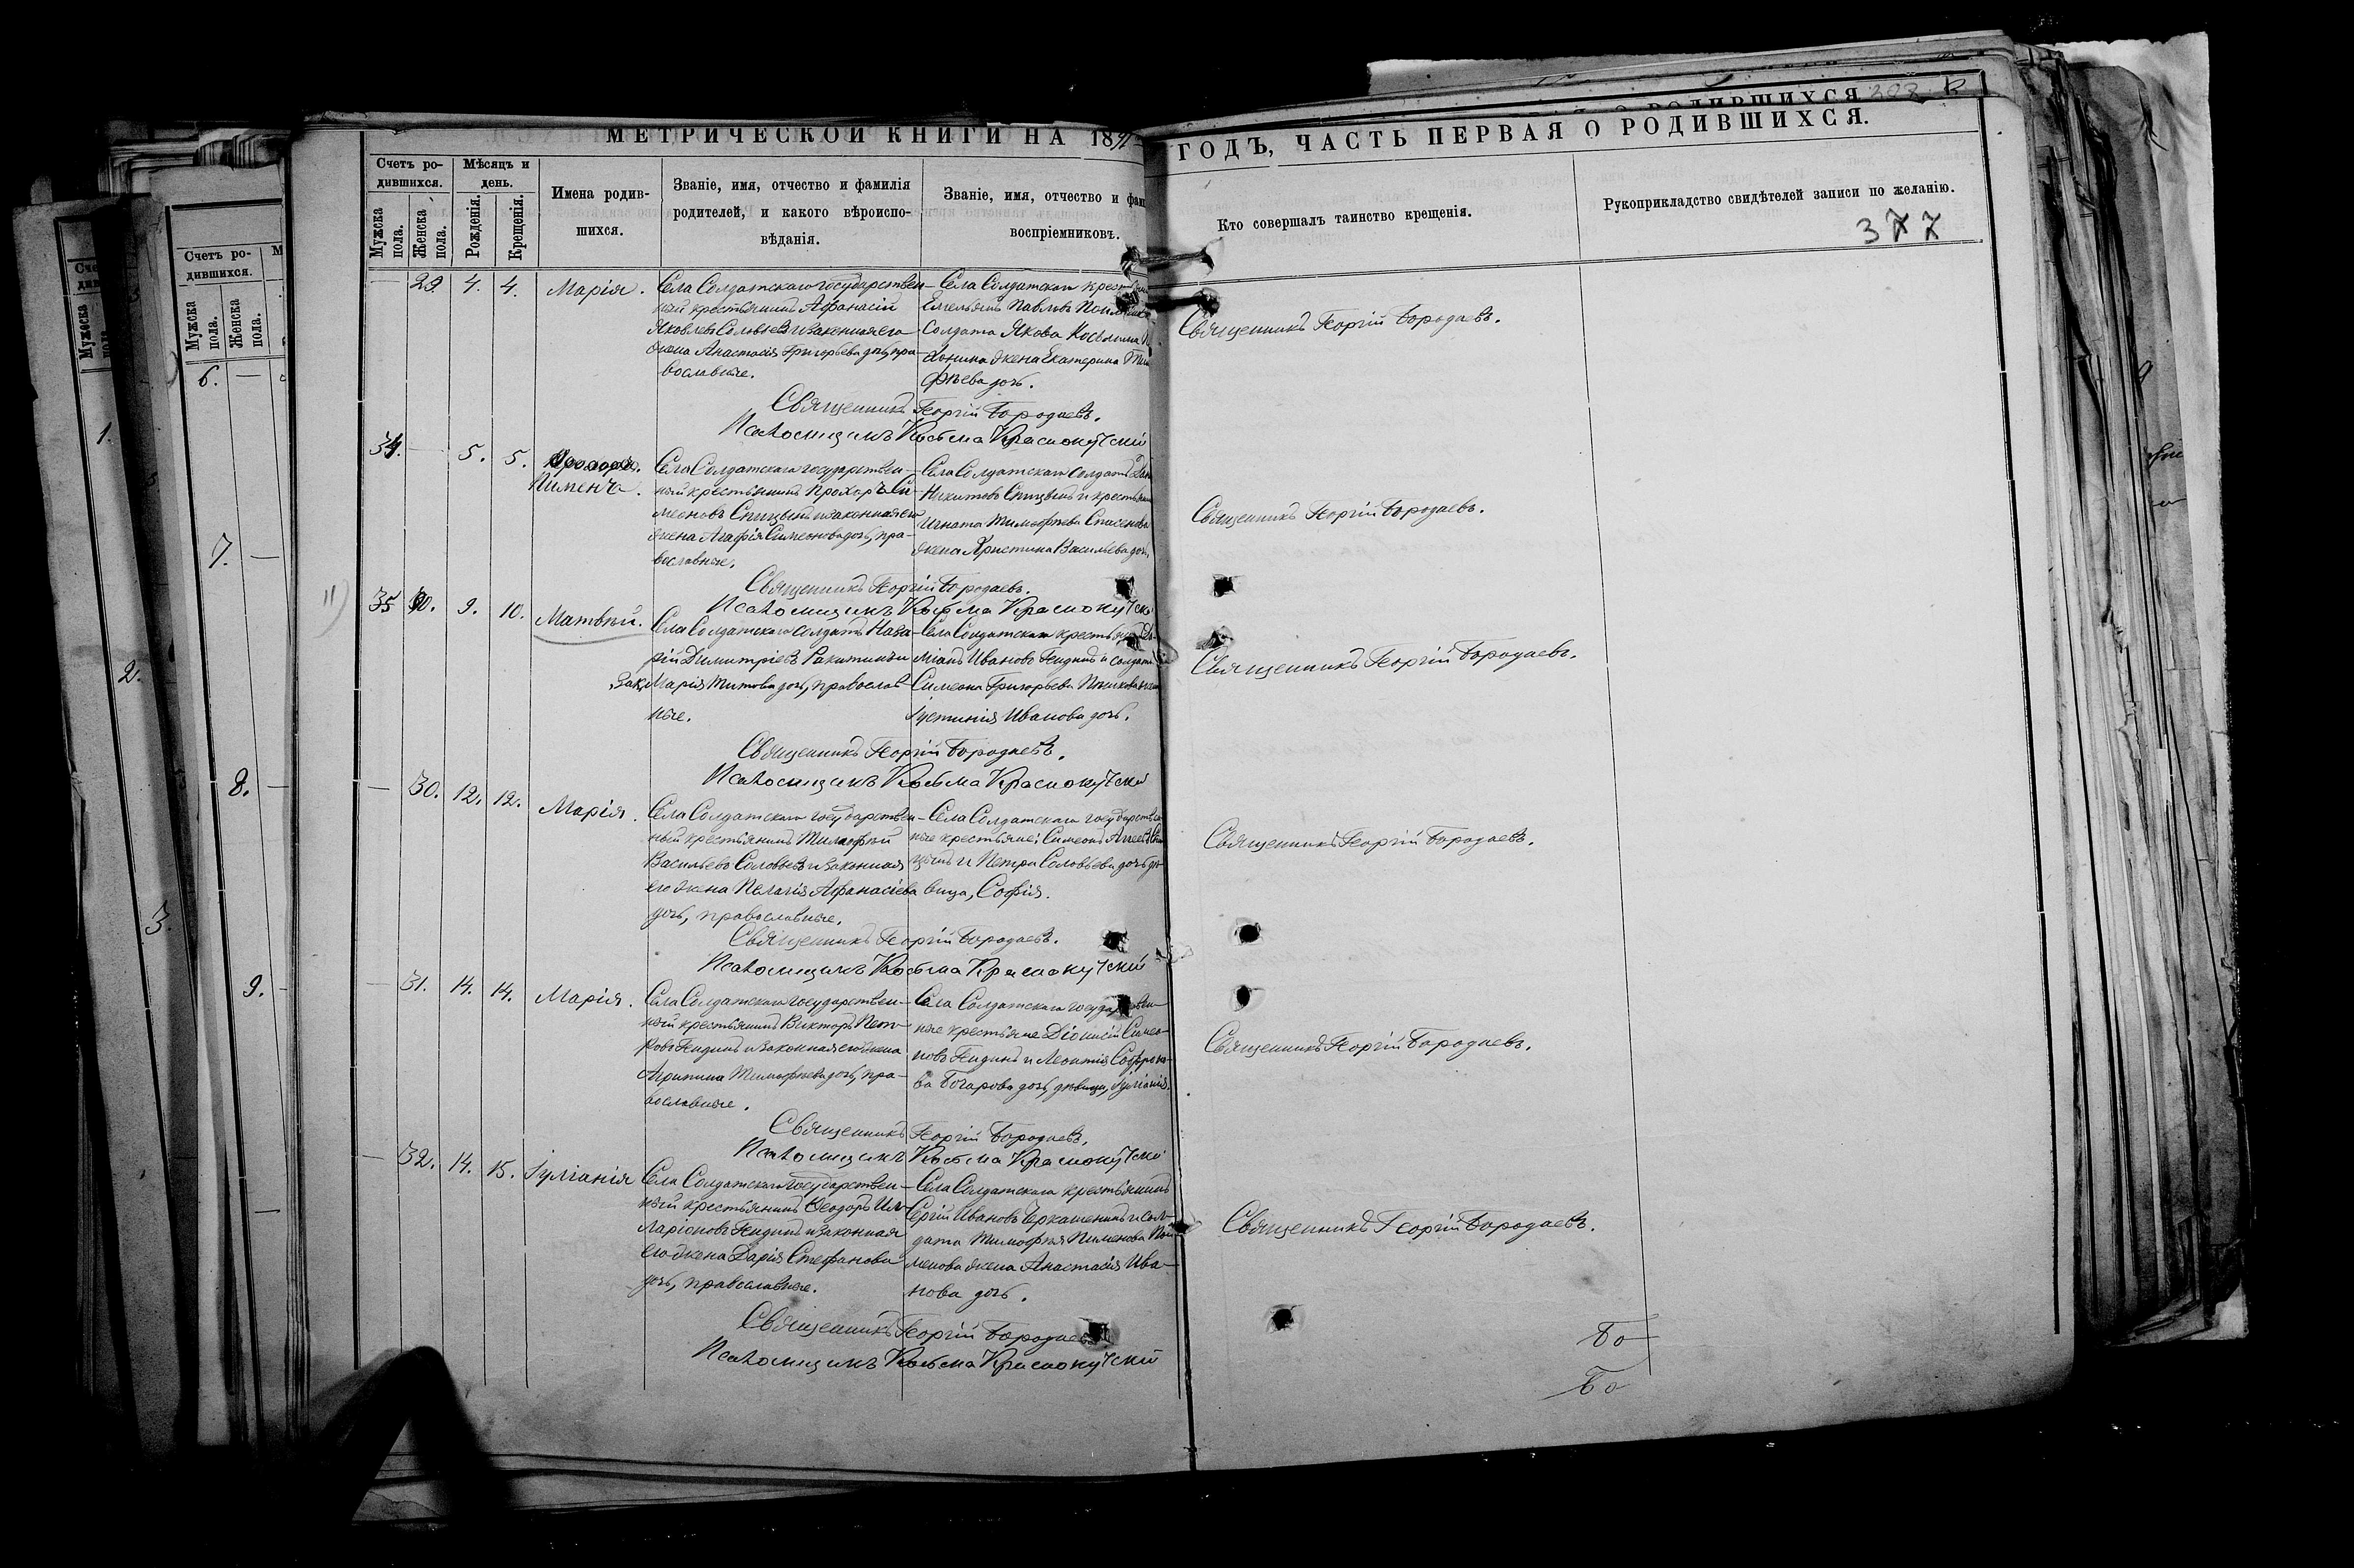 МЕТРИЧЕСКОЙ КНИГИ НА 18
ГОДЪ, ЧАСТЬ ПЕРВАЯ О РОДИВШИХСЯ.
Счетъ ро-
дившихся.
Мужска
пола.
Женска
пола.
Мѣсяцъ и
день.
Рожденія.
Крещенія.
Имена родив-
шихся.
Званіе, имя, отчество и фамилія
родителей, и какого вѣроиспо-
вѣданія.
Званіе, имя, отчество и фам
воспріемниковъ.
Кто совершалъ таинство крещенія.
Рукоприкладство свидѣтелей записи по желанію.
377
29. 4. 4. Марія.
Села Солдатскаго государствен-
ный крестьянинъ Афанасій
Яковлевъ Соловьевъ и законная его
жена Анастасія Григорьева дочь, пра-
вославные.
Села Солдатскаго крест
Емельянъ Павловъ
солдата Якова Косьмина
жена Екатерина Тимо
фѣева дочь.
Священникъ Георгій Бородаевъ.
Священникъ Георгій Бородаевъ.
Псаломщикъ Косьма Краснокутскій
34. 5. 5.
Пимена.
Села Солдатскаго государствен-
ный крестьянинъ Прохоръ Си-
меоновъ Спицынъ и законная его
жена Агафія Симеонова дочь, пра-
вославные.
Села Солдатскаго солдатъ
Никитовъ Спицынъ и крестьян
Игната Тимофѣева
жена Христина Васильева дочь
Священникъ Георгій Бородаевъ.
Священникъ Георгій Бородаевъ.
Псаломщикъ Косьма Краснокутск
11) 35 9. 10. Матвѣй.
Села Солдатскаго солдатъ Наза-
рій Димитріевъ Ракитинъ и
зак. Марія Титова дочь, православ-
ные.
Села Солдатскаго крестьян Да-
міанъ Ивановъ Гендинъ и солдата
Симеона Григорьева
Іустинія Иванова дочь.
Священникъ Георгій Бородаевъ.
Священникъ Георгій Бородаевъ.
Псаломщикъ Косьма Краснокутскій
— 30. 12. 12. Марія.
Села Солдатскаго государствен-
ный крестьянинъ Тимофѣй
Васильевъ Соловьевъ и законная
его жена Пелагія Афанасіева
дочь, православные.
Села Солдатскаго государствен
ные крестьяне: Симеонъ
цынъ и Петра Соловьева дочь дѣ-
вица, Софія.
Священникъ Георгій Бородаевъ.
Священникъ Георгій Бородаевъ.
Псаломщикъ Косьма Краснокутскій
— 31. 14. 14. Марія.
Села Солдатскаго государствен-
ный крестьянинъ Викторъ Пет-
ровъ Гендинъ и законная его жена
Агрипина Тимофѣева дочь, пра-
вославные.
Села Солдатскаго государствен-
ные крестьяне Діонисій Симео-
новъ Гендинъ и Леонтія Софроно-
ва Бочарова дочь, дѣвица, Іуліанія.
Священникъ Георгій Бородаевъ.
Священникъ Георгій Бородаевъ.
Псаломщикъ Косьма Краснокутскій
— 32. 14. 15. Іуліанія
Села Солдатскаго государствен-
ный крестьянинъ Ѳеодоръ Ил-
ларіоновъ Гендинъ и законная
его жена Дарія Стефанова
дочь, православные.
Села Солдатскаго крестьянинъ
Сергій Ивановъ Черкашенинъ и сол-
дата Тимофѣя Пименова
жена Анастасія Ива-
нова дочь.
Священникъ Георгій Бородаевъ.
Священникъ Георгій Бородаевъ
Псаломщикъ Косьма Краснокутскій
Бо
Бо
Счетъ ро-
дившихся.
Мужска
пола.
Женска
пола.
6. —
7. —
8. —
9.
1.
2.
3.